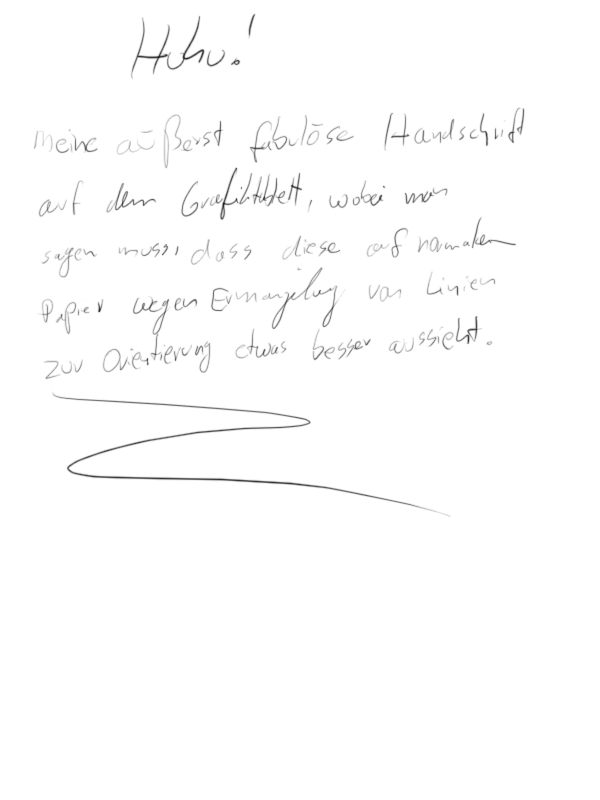 Huhu!
Meine äußerst fabulöse Handschrift
auf dem Grafiktablett, wobei man
sagen muss, dass diese auf normalem
Papier wegen Ermangelung von Linien
zur Orientierung etwas besser aussieht.